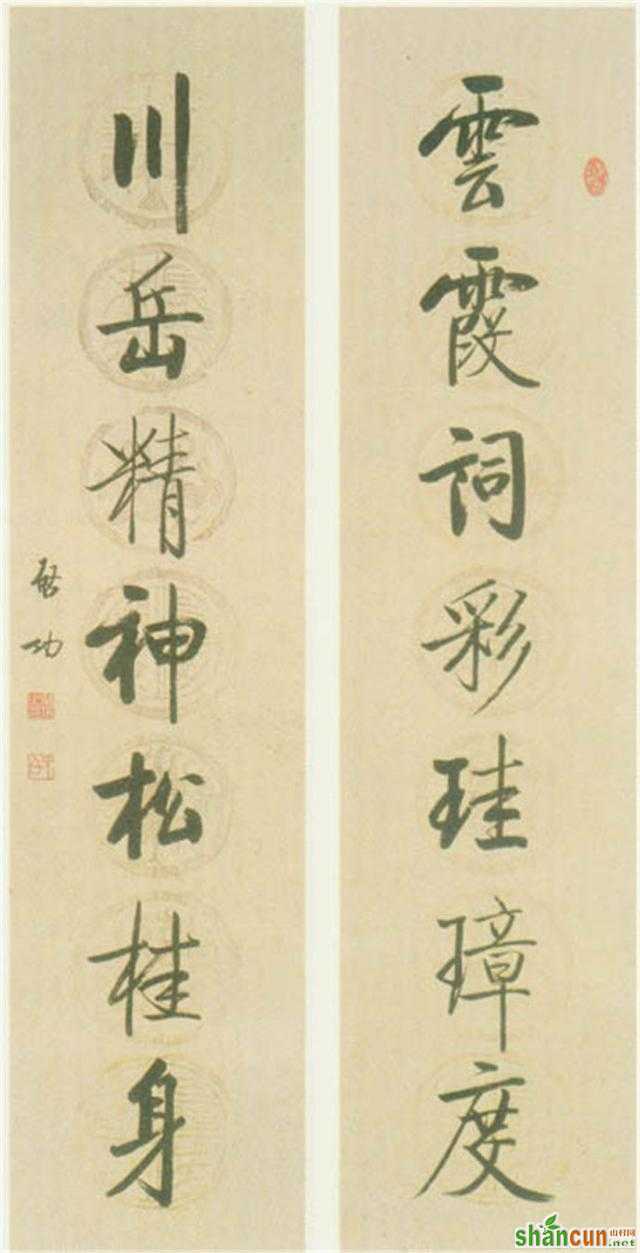 雲霞詞彩珪璋度
川岳精神松桂身
啓功
shancun
山村网
.net